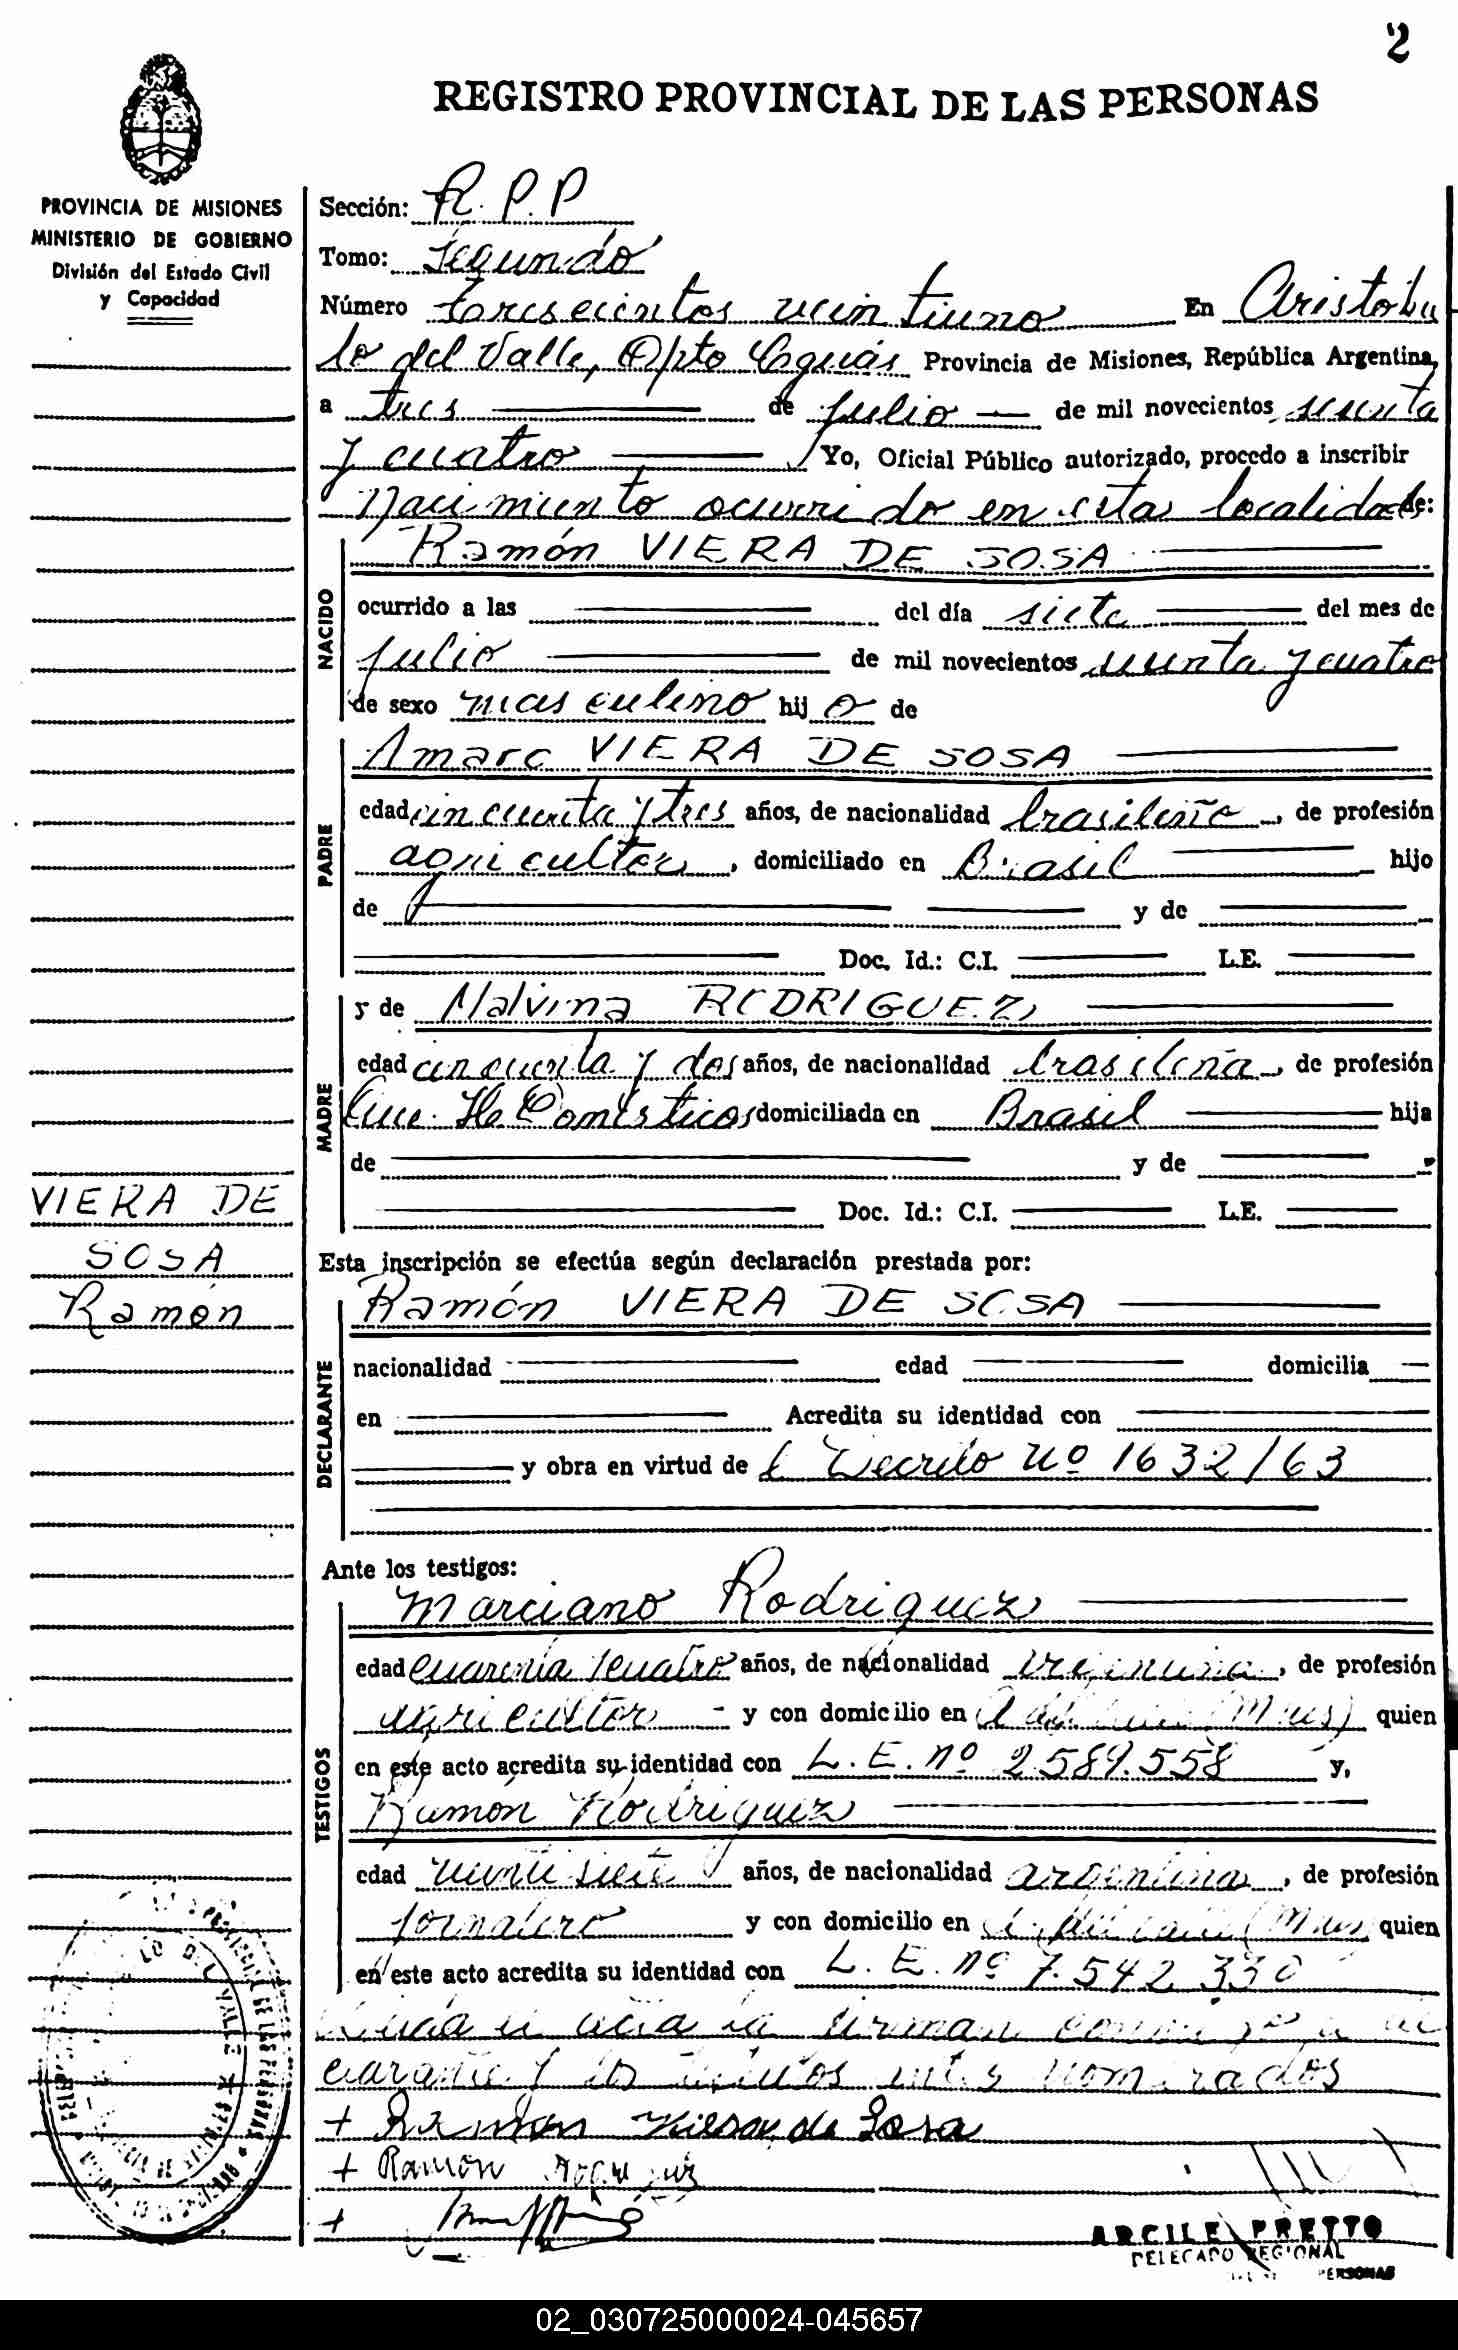 2
REGISTRO PROVINCIAL DE LAS PERSONAS
PROVINCIA DE MISIONES
MINISTERIO DE GOBIERNO
División del Estado Civil
y Capacidad
Sección: R.P.P
Tomo: Segundo
Número trescientos veintiuno En Aristobu
lo del Valle, Dpto Cguás Provincia de Misiones, República Argentina,
a tres de julio de mil novecientos sesenta
y cuatro Yo, Oficial Público autorizado, procedo a inscribir
Nacimiento ocurrido en esta localidad de:
Ramón VIERA DE SOSA
NACIDO
ocurrido a las del día siete del mes de
julio de mil novecientos sesenta y cuatro
de sexo masculino hij o de
Amaro VIERA DE SOSA
PADRE
edad cincuenta y tres años, de nacionalidad brasileño, de profesión
agricultor, domiciliado en Brasil hijo
de y de
Doc. Id.: C.I. L.E.
y de Malvina RODRIGUEZ
MADRE
edad cincuenta y dos años, de nacionalidad brasileña, de profesión
Domésticos domiciliada en Brasil hija
de y de
Doc. Id.: C.I. L.E.
VIERA DE
SOSA
Ramón
Esta inscripción se efectúa según declaración prestada por:
Ramón VIERA DE SOSA
DECLARANTE
nacionalidad edad domicilia
en Acredita su identidad con
y obra en virtud de l Decreto Nº 1632/63
Ante los testigos:
Marciano Rodriguez
TESTIGOS
edad cuarenta y cuatro años, de nacionalidad argentina, de profesión
agricultor y con domicilio en A del Valle (Mnes) quien
en este acto acredita su identidad con L.E. nº 2.589.558 y,
Ramón Rodriguez
edad veintisiete años, de nacionalidad argentina, de profesión
jornalero y con domicilio en A. del Valle (Mnes) quien
en este acto acredita su identidad con L.E. nº 7.542.330
Leida el acta la firman conmigo el de
clarante y los testigos antes nombrados
+ Ramon Viera de Sosa
+ Ramón Rodriguez
+
ARCILE PRETTO
DELEGADO REGIONAL
PERSONAS
02_030725000024-045657